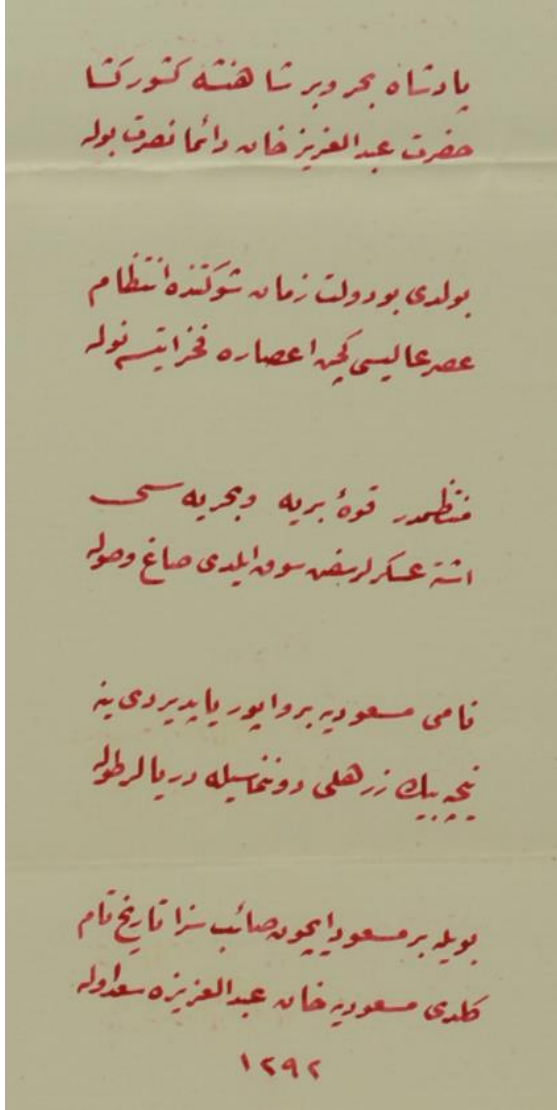 پادشاه بحر وبر شاهنشه كشوركشا
حضرت عبد العزيز خان دائما نصرت بوله
بولدی بو دولت زمان شوكتنده انتظام
عصر عاليسی كچن اعصاره فخر ايتسه نوله
منتظمدر قوۀ بريه وبحريه سی
اشته عسكرلر سوق ايلدی صاغ وصوله
نامی مسعوديه بر واپور ياپديردی ينه
نيچه بيك زرهلی دوننماسيله دريالر طوله
بويله بر مسعوديه ايچون صائب سزا تاريخ تام
كلدی مسعوديه خان عبد العزيزه سعد اوله
١٢٩٢